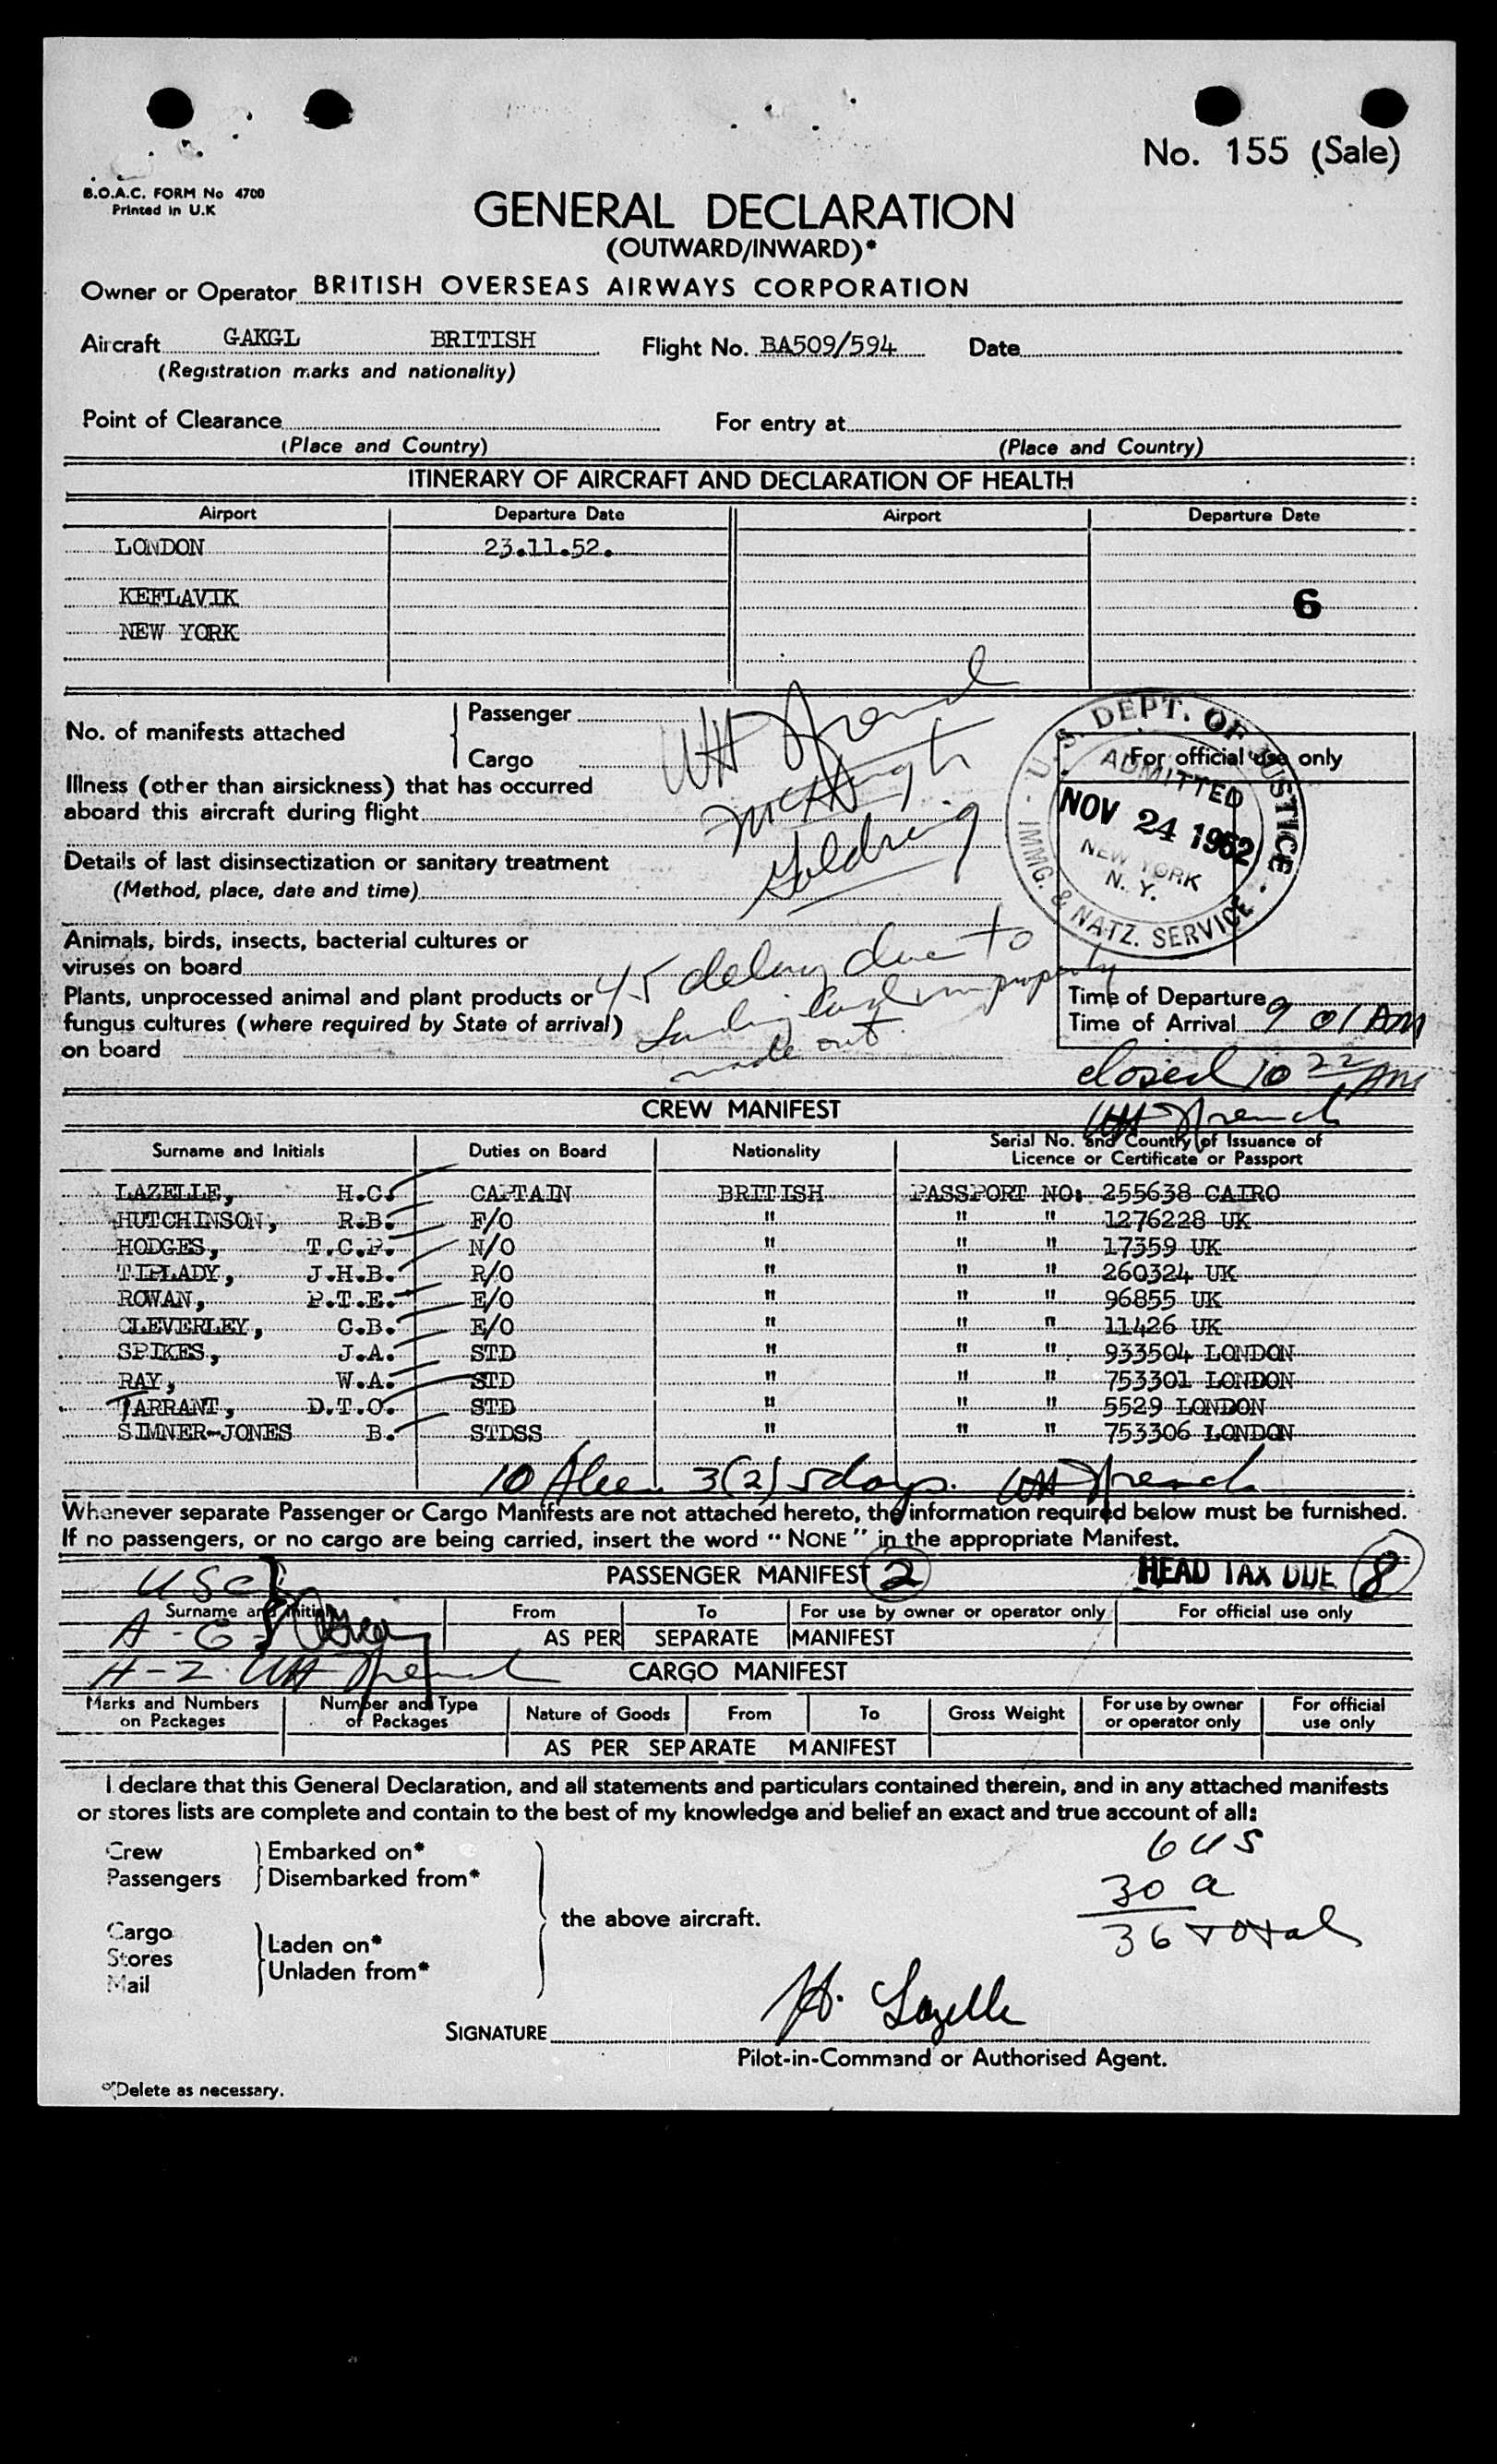 No. 155 (Sale)
B.O.A.C. FORM No 4700
Printed in U.K
GENERAL DECLARATION
(OUTWARD/INWARD)*
Owner or Operator BRITISH OVERSEAS AIRWAYS CORPORATION
Aircraft GAKGL BRITISH Flight No. BA509/594 Date
(Registration marks and nationality)
Point of Clearance For entry at
(Place and Country) (Place and Country)
ITINERARY OF AIRCRAFT AND DECLARATION OF HEALTH
Airport Departure Date Airport Departure Date
LONDON 23.11.52.
KEFLAVIK 6
NEW YORK
No. of manifests attached
Passenger
Cargo
WH French
McHugh
Goldring
U.S. DEPT. OF JUSTICE
IMMG. & NATZ. SERVICE
ADMITTED
NOV 24 1952
NEW YORK
N. Y.
For official use only
Illness (other than airsickness) that has occurred
aboard this aircraft during flight
Details of last disinsectization or sanitary treatment
(Method, place, date and time)
Animals, birds, insects, bacterial cultures or
viruses on board
Plants, unprocessed animal and plant products or
fungus cultures (where required by State of arrival)
on board
45 delay due to
Landing card improperly
made out.
Time of Departure
Time of Arrival 9 01 AM
closed 10 22 AM
WH French
CREW MANIFEST
Surname and Initials Duties on Board Nationality Serial No. and Country of Issuance of
Licence or Certificate or Passport
LAZELLE, H.C. CAPTAIN BRITISH PASSPORT NO: 255638 CAIRO
HUTCHINSON, R.B. F/O " " " 1276228 UK
HODGES, T.C.P. N/O " " " 17359 UK
TIPLADY, J.H.B. R/O " " " 260324 UK
ROWAN, P.T.E. E/O " " " 96855 UK
CLEVERLEY, C.B. E/O " " " 11426 UK
SPIKES, J.A. STD " " " 933504 LONDON
RAY, W.A. STD " " " 753301 LONDON
TARRANT, D.T.O. STD " " " 5529 LONDON
SIMNER-JONES B. STDSS " " " 753306 LONDON
10 3(2) 5 days. WH French
Whenever separate Passenger or Cargo Manifests are not attached hereto, the information required below must be furnished.
If no passengers, or no cargo are being carried, insert the word "NONE" in the appropriate Manifest.
USC PASSENGER MANIFEST 2 HEAD TAX DUE 8
Surname and Initials From To For use by owner or operator only For official use only
A-G AS PER SEPARATE MANIFEST
H-Z WH French CARGO MANIFEST
Marks and Numbers on Packages Number and Type of Packages Nature of Goods From To Gross Weight For use by owner or operator only For official use only
AS PER SEPARATE MANIFEST
I declare that this General Declaration, and all statements and particulars contained therein, and in any attached manifests
or stores lists are complete and contain to the best of my knowledge and belief an exact and true account of all:
Crew Embarked on*
Passengers Disembarked from*
the above aircraft.
Cargo
Stores Laden on*
Mail Unladen from*
6 US
30 a
36 total
SIGNATURE H. Lazelle
Pilot-in-Command or Authorised Agent.
*Delete as necessary.